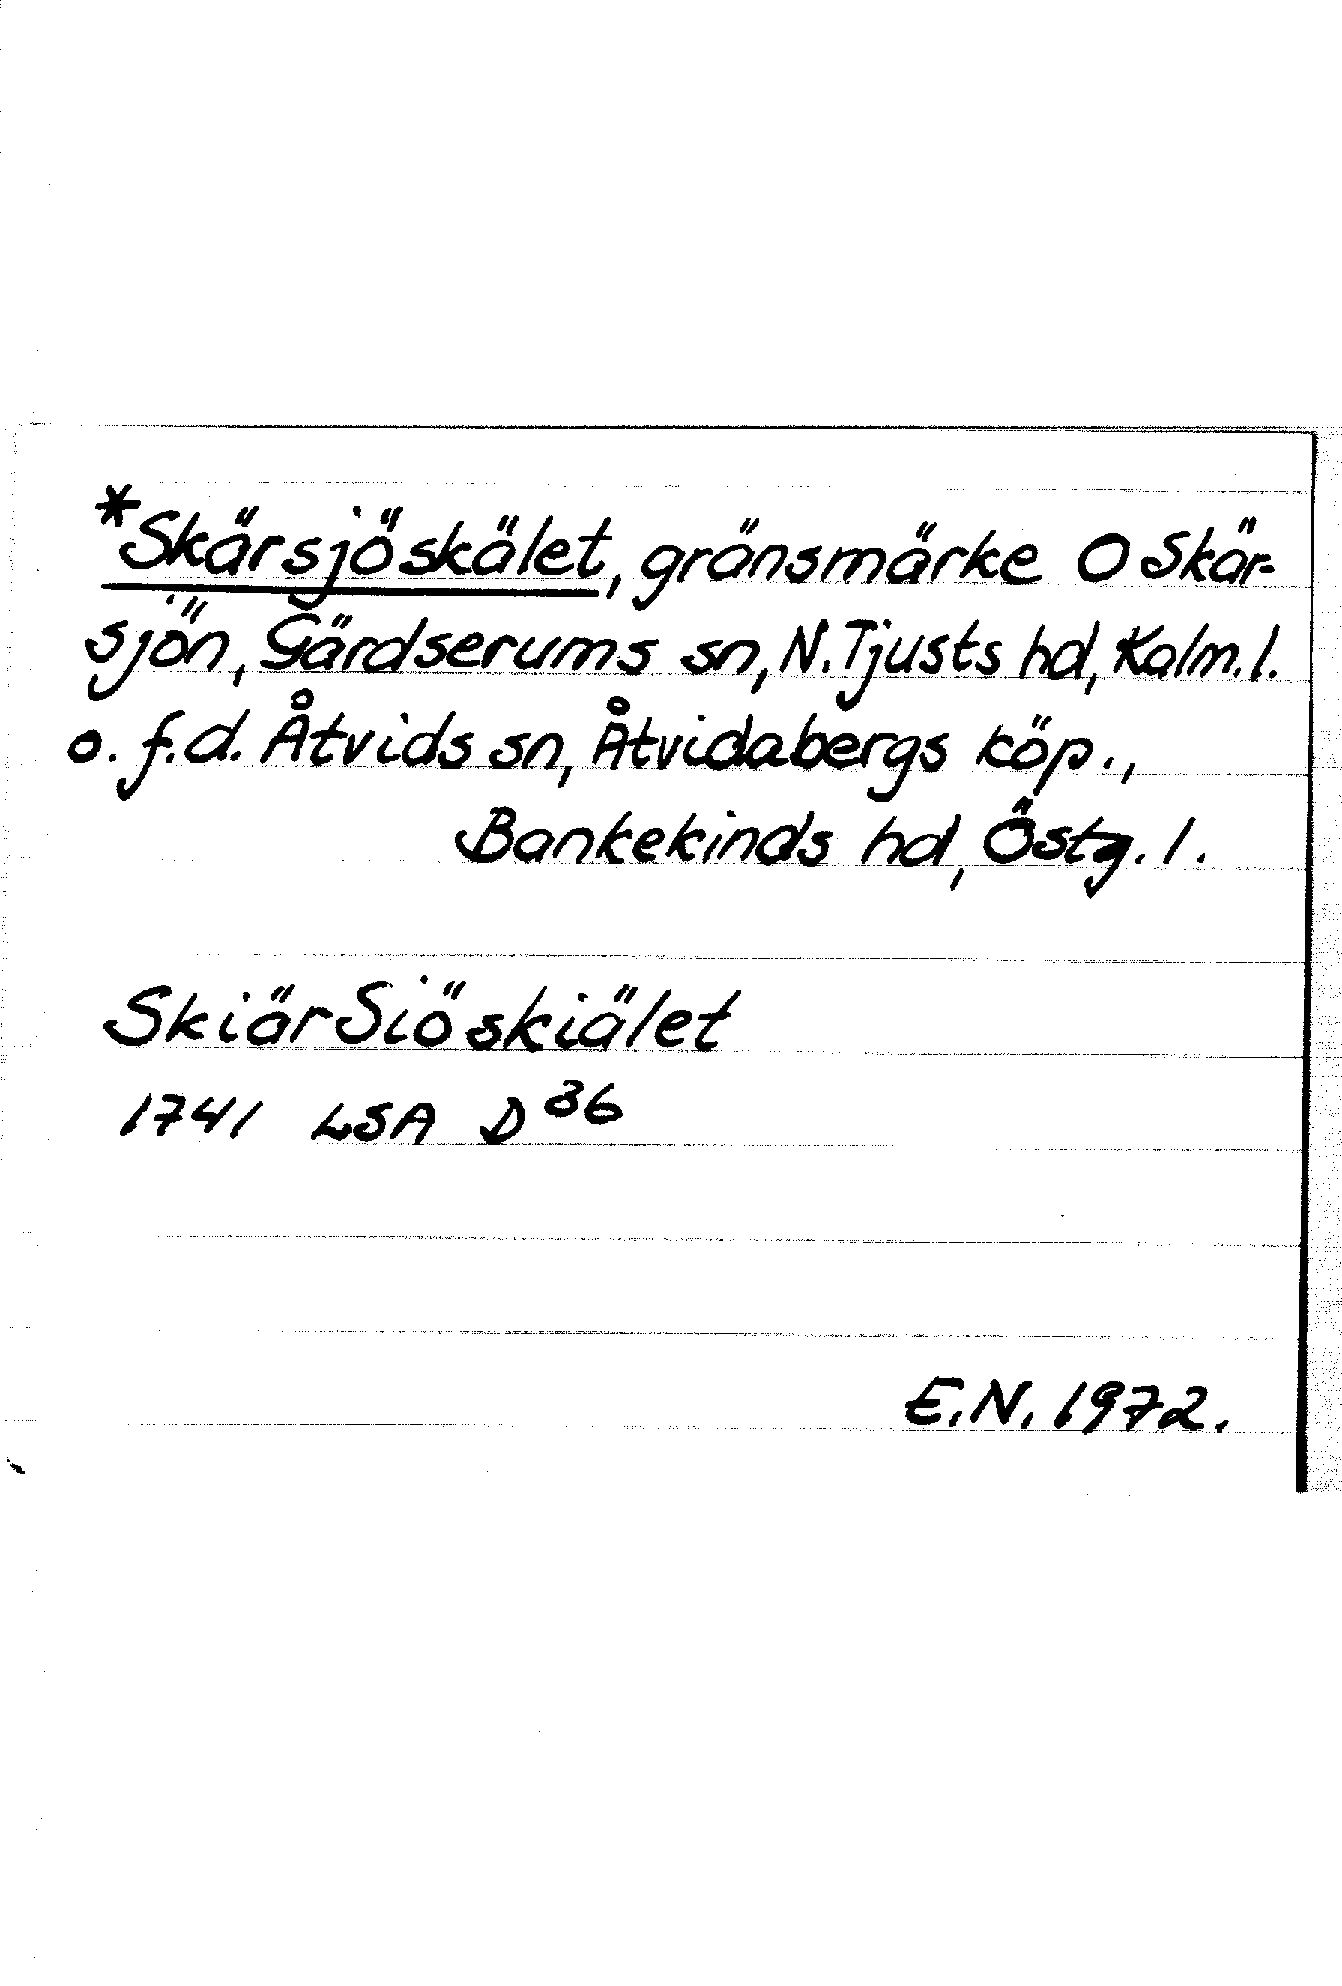 *Skärsjöskälet, gränsmärke O Skär-
sjön, Gärdserums sn, N. Tjusts hd, Kalm. l.
o. f.d. Åtvids sn, Åtvidabergs köp.,
Bankekinds hd, Östg. l.
SkiärSiöskiälet
1741 LSA D 36
E.N. 1972.